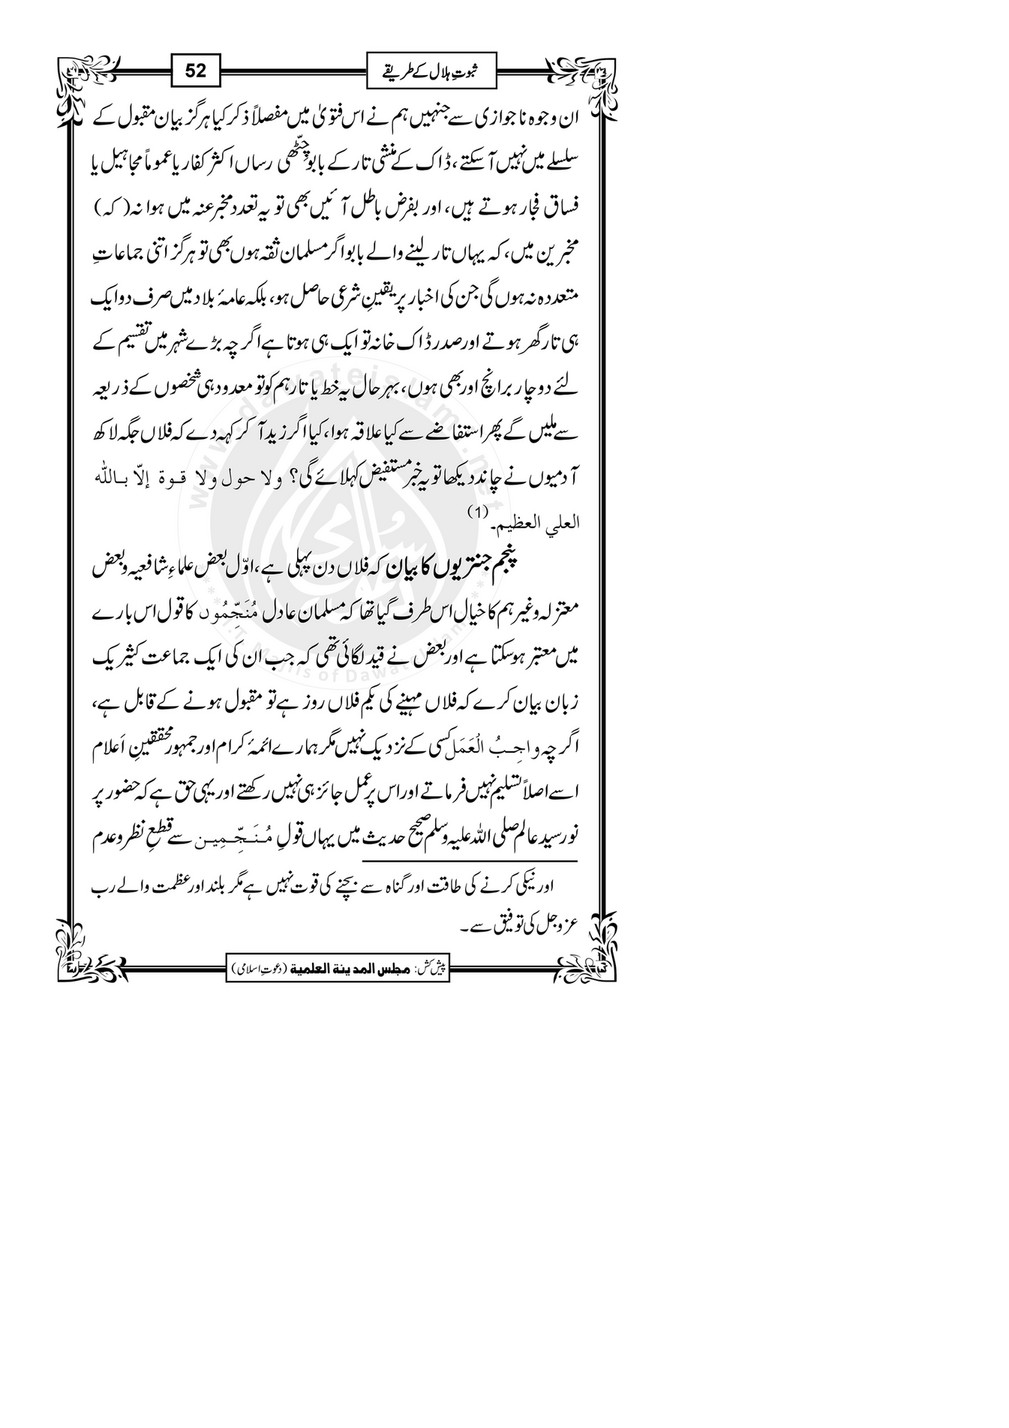 ثبوتِ ہلال کے طریقے
52
ان وجوہ ناجوازی سے جنہیں ہم نے اس فتویٰ میں مفصلاً ذکر کیا ہرگز بیان مقبول کے
سلسلے میں نہیں آسکتے، ڈاک کے منشی تار کے بابو چِٹّھی رساں اکثر کفار یا عموماً مجاہیل یا
فساق فجار ہوتے ہیں، اور بفرض باطل آئیں بھی تو یہ تعدد مخبر عنہ میں ہوا نہ (کہ)
مخبرین میں، کہ یہاں تار لینے والے بابو اگر مسلمان ثقہ ہوں بھی تو ہرگز اتنی جماعاتِ
متعددہ نہ ہوں گی جن کی اخبار پر یقینِ شرعی حاصل ہو، بلکہ عامۂ بلاد میں صرف دو ایک
ہی تار گھر ہوتے اور صدر ڈاک خانہ تو ایک ہی ہوتا ہے اگرچہ بڑے شہر میں تقسیم کے
لئے دو چار برانچ اور بھی ہوں، بہر حال یہ خط یا تار ہم کو تو معدود ہی شخصوں کے ذریعہ
سے ملیں گے پھر استفاضے سے کیا علاقہ ہوا، کیا اگر زید آ کر کہہ دے کہ فلاں جگہ لاکھ
آدمیوں نے چاند دیکھا تو یہ خبر مستفیض کہلائے گی؟ ولا حول ولا قوة إلّا بالله
العلي العظيم۔(1)
پنجم جنتریوں کا بیان کہ فلاں دن پہلی ہے، اوّل بعض علماءِ شافعیہ و بعض
معتزلہ وغیرہم کا خیال اس طرف گیا تھا کہ مسلمان عادل مُنَجِّمُوں کا قول اس بارے
میں معتبر ہوسکتا ہے اور بعض نے قید لگائی تھی کہ جب ان کی ایک جماعت کثیر یک
زبان بیان کرے کہ فلاں مہینے کی یکم فلاں روز ہے تو مقبول ہونے کے قابل ہے،
اگرچہ واجِبُ الْعَمَل کسی کے نزدیک نہیں مگر ہمارے ائمۂ کرام اور جمہور محققینِ اَعلام
اسے اصلاً تسلیم نہیں فرماتے اور اس پر عمل جائز ہی نہیں رکھتے اور یہی حق ہے کہ حضور پر
نور سید عالم صلی اللہ علیہ وسلم صحیح حدیث میں یہاں قولِ مُنَجِّمِین سے قطعِ نظر و عدم
اور نیکی کرنے کی طاقت اور گناہ سے بچنے کی قوت نہیں ہے مگر بلند اور عظمت والے رب
عزوجل کی توفیق سے۔
پیش کش: مجلس المدینة العلمیة (دعوتِ اسلامی)